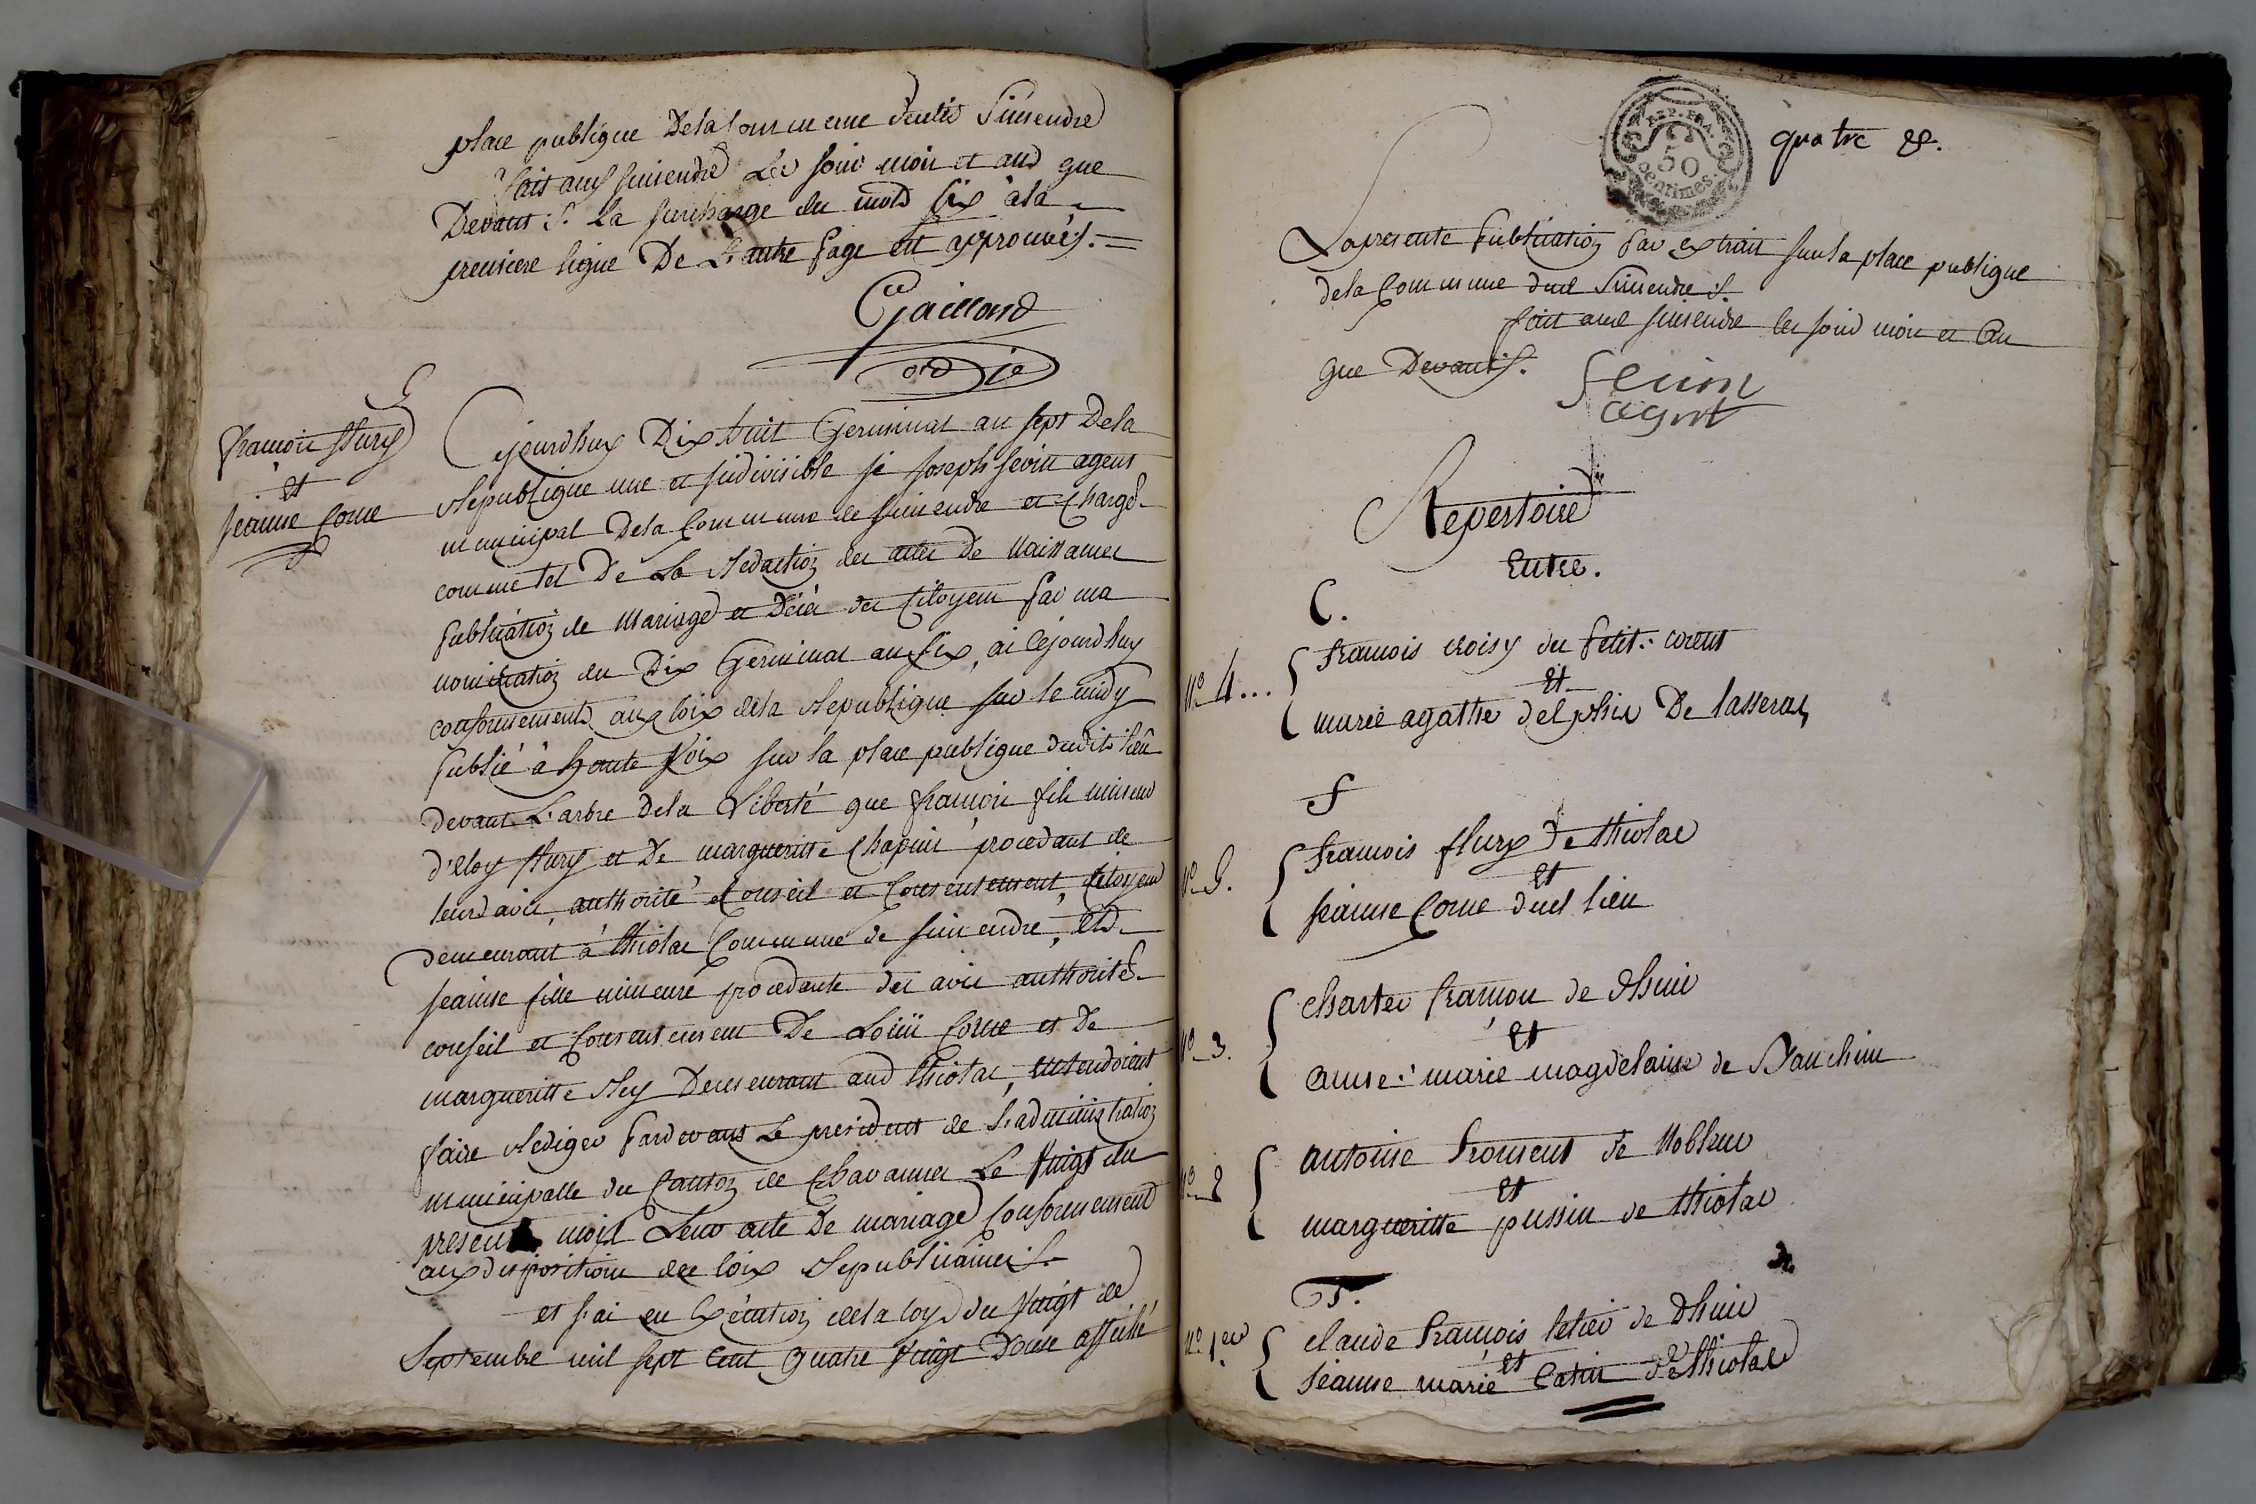 place publique Dela Commune dudit Simendre
fait aud Simendre Les jour mois et and que
Devant ./. La surcharge du mots six à la
premiere ligne De L'autre page est approuvés. =
Gaillard
François flury
et
jeanne Corne
Cejourdhuy Dix huit Germinal an sept Dela
Republique une et indivisible je joseph sevin agent
municipal Dela Commune de simendre et Chargé
comme tel De La Redaction des actes De Naissances
publication de Mariage et Décés des Citoyens par ma
nomination du Dix Germinal an six, ai Cejourdhuy
conformement aux loix dela Republique sur le midy
publié à haute voix sur la place publique dudit lieu
devant L'arbre dela Liberté que François fils mineur
d'Eloy flury et De margueritte Chapuis procedant de
leurs avis, authorité Conseil et Consentement, Citoyens
demeurant à thiolac Commune de simendre, Et
jeanne fille mineure procedante des avis authorité
conseil et Consentement De Loüis Corne et De
margueritte Rey Demeurant aud thiolac, Entendoient
faire Rediger pardevant Le president de L'administration
municipalle du Canton de Chavannes Le Vingt du
present mois Leur acte De mariage Conformement
aux dispositions des loix Republicaines ./.
et j'ai en Execution dela loy du Vingt de
Septembre mil sept Cent quatre Vingt Douze affiché
REP. FRA.
50
centimes.
quatre &.
La presente publication par Extrait sur la place publique
dela Commune dud Simendre ./.
fait aud simendre les jour mois et an
que Devant ./.
Sevin
agent
Repertoire
Entre.
C.
N° 4... François Croisy du petit : corent
et
marie agathe delphin De lasseras
F
N° 5. François flury De thiolac
et
jeanne Corne dud lieu
N° 3. Charles François de Dhuis
et
anne : marie magdelaine de
N° 2 antoine froment de Noblens
et
margueritte pussin de thiolac
T.
N° 1er Claude François de Dhuis
et
jeanne marie Catin De thiolac